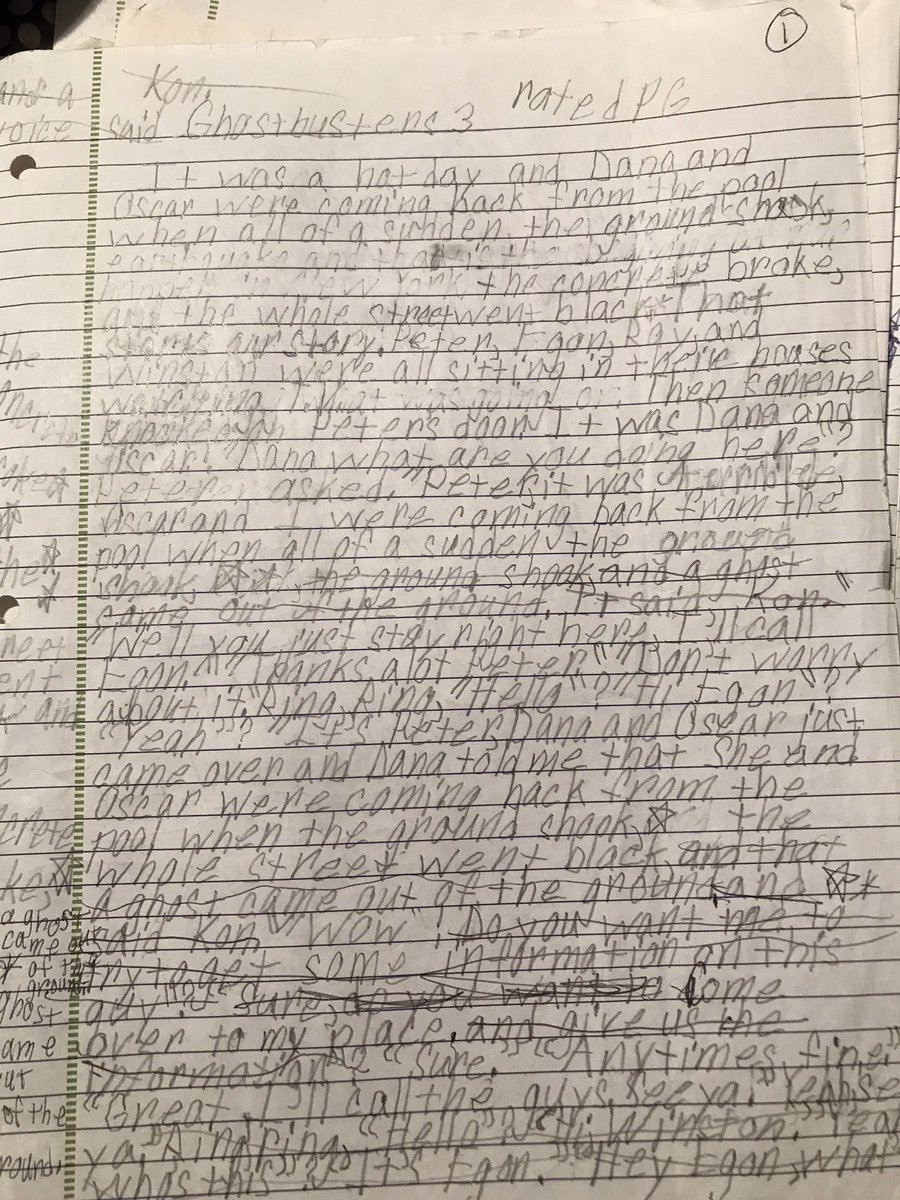 1
Kon. rated PG
said Ghostbusters 3
It was a hot day and Dana and
Oscar were coming back from the pool
when all of a sudden the ground shook,
earthquake and that is the
in New York the concrete broke,
and the whole street went black. That
starts our story. Peter, Egon, Ray, and
Winston were all sitting in there houses
watching what was going on. Then someone
on Peters door. It was Dana and
Oscar! "Dana what are you doing here"?
Peter asked. "Peter it was terrible,
Oscar and I were coming back from the
pool when all of a sudden the ground
shook, the ground shook, and a ghost
came out of the ground. It said, Kon."
"Well you just stay right here, I'll call
Egon." "Thanks alot Peter." "Don't worry
about it. Ring, Ring, "Hello"? "Hi Egon"?
"Yeah"? It's Peter, Dana and Oscar just
came over and Dana told me that she and
Oscar were coming back from the
pool when the ground shook, the
whole street went black, and that
a ghost came out of the ground, and
said Kon" "Wow". Do you want me to
try to get some information on this
guy"? "Sure, do you want to Come
over to my place, and give us the
information"? "Sure." "Anytimes fine."
"Great, I'll call the guys. See ya." Yeah see
ya." Ring, ring, "Hello" "Hi Winston." Yeah
whos this"? "It's Egon." "Hey Egon, what
and a
voice
the
the
crete
ke,
a ghost
came out
of the
ground
ghost
ame
ut
of the
round.